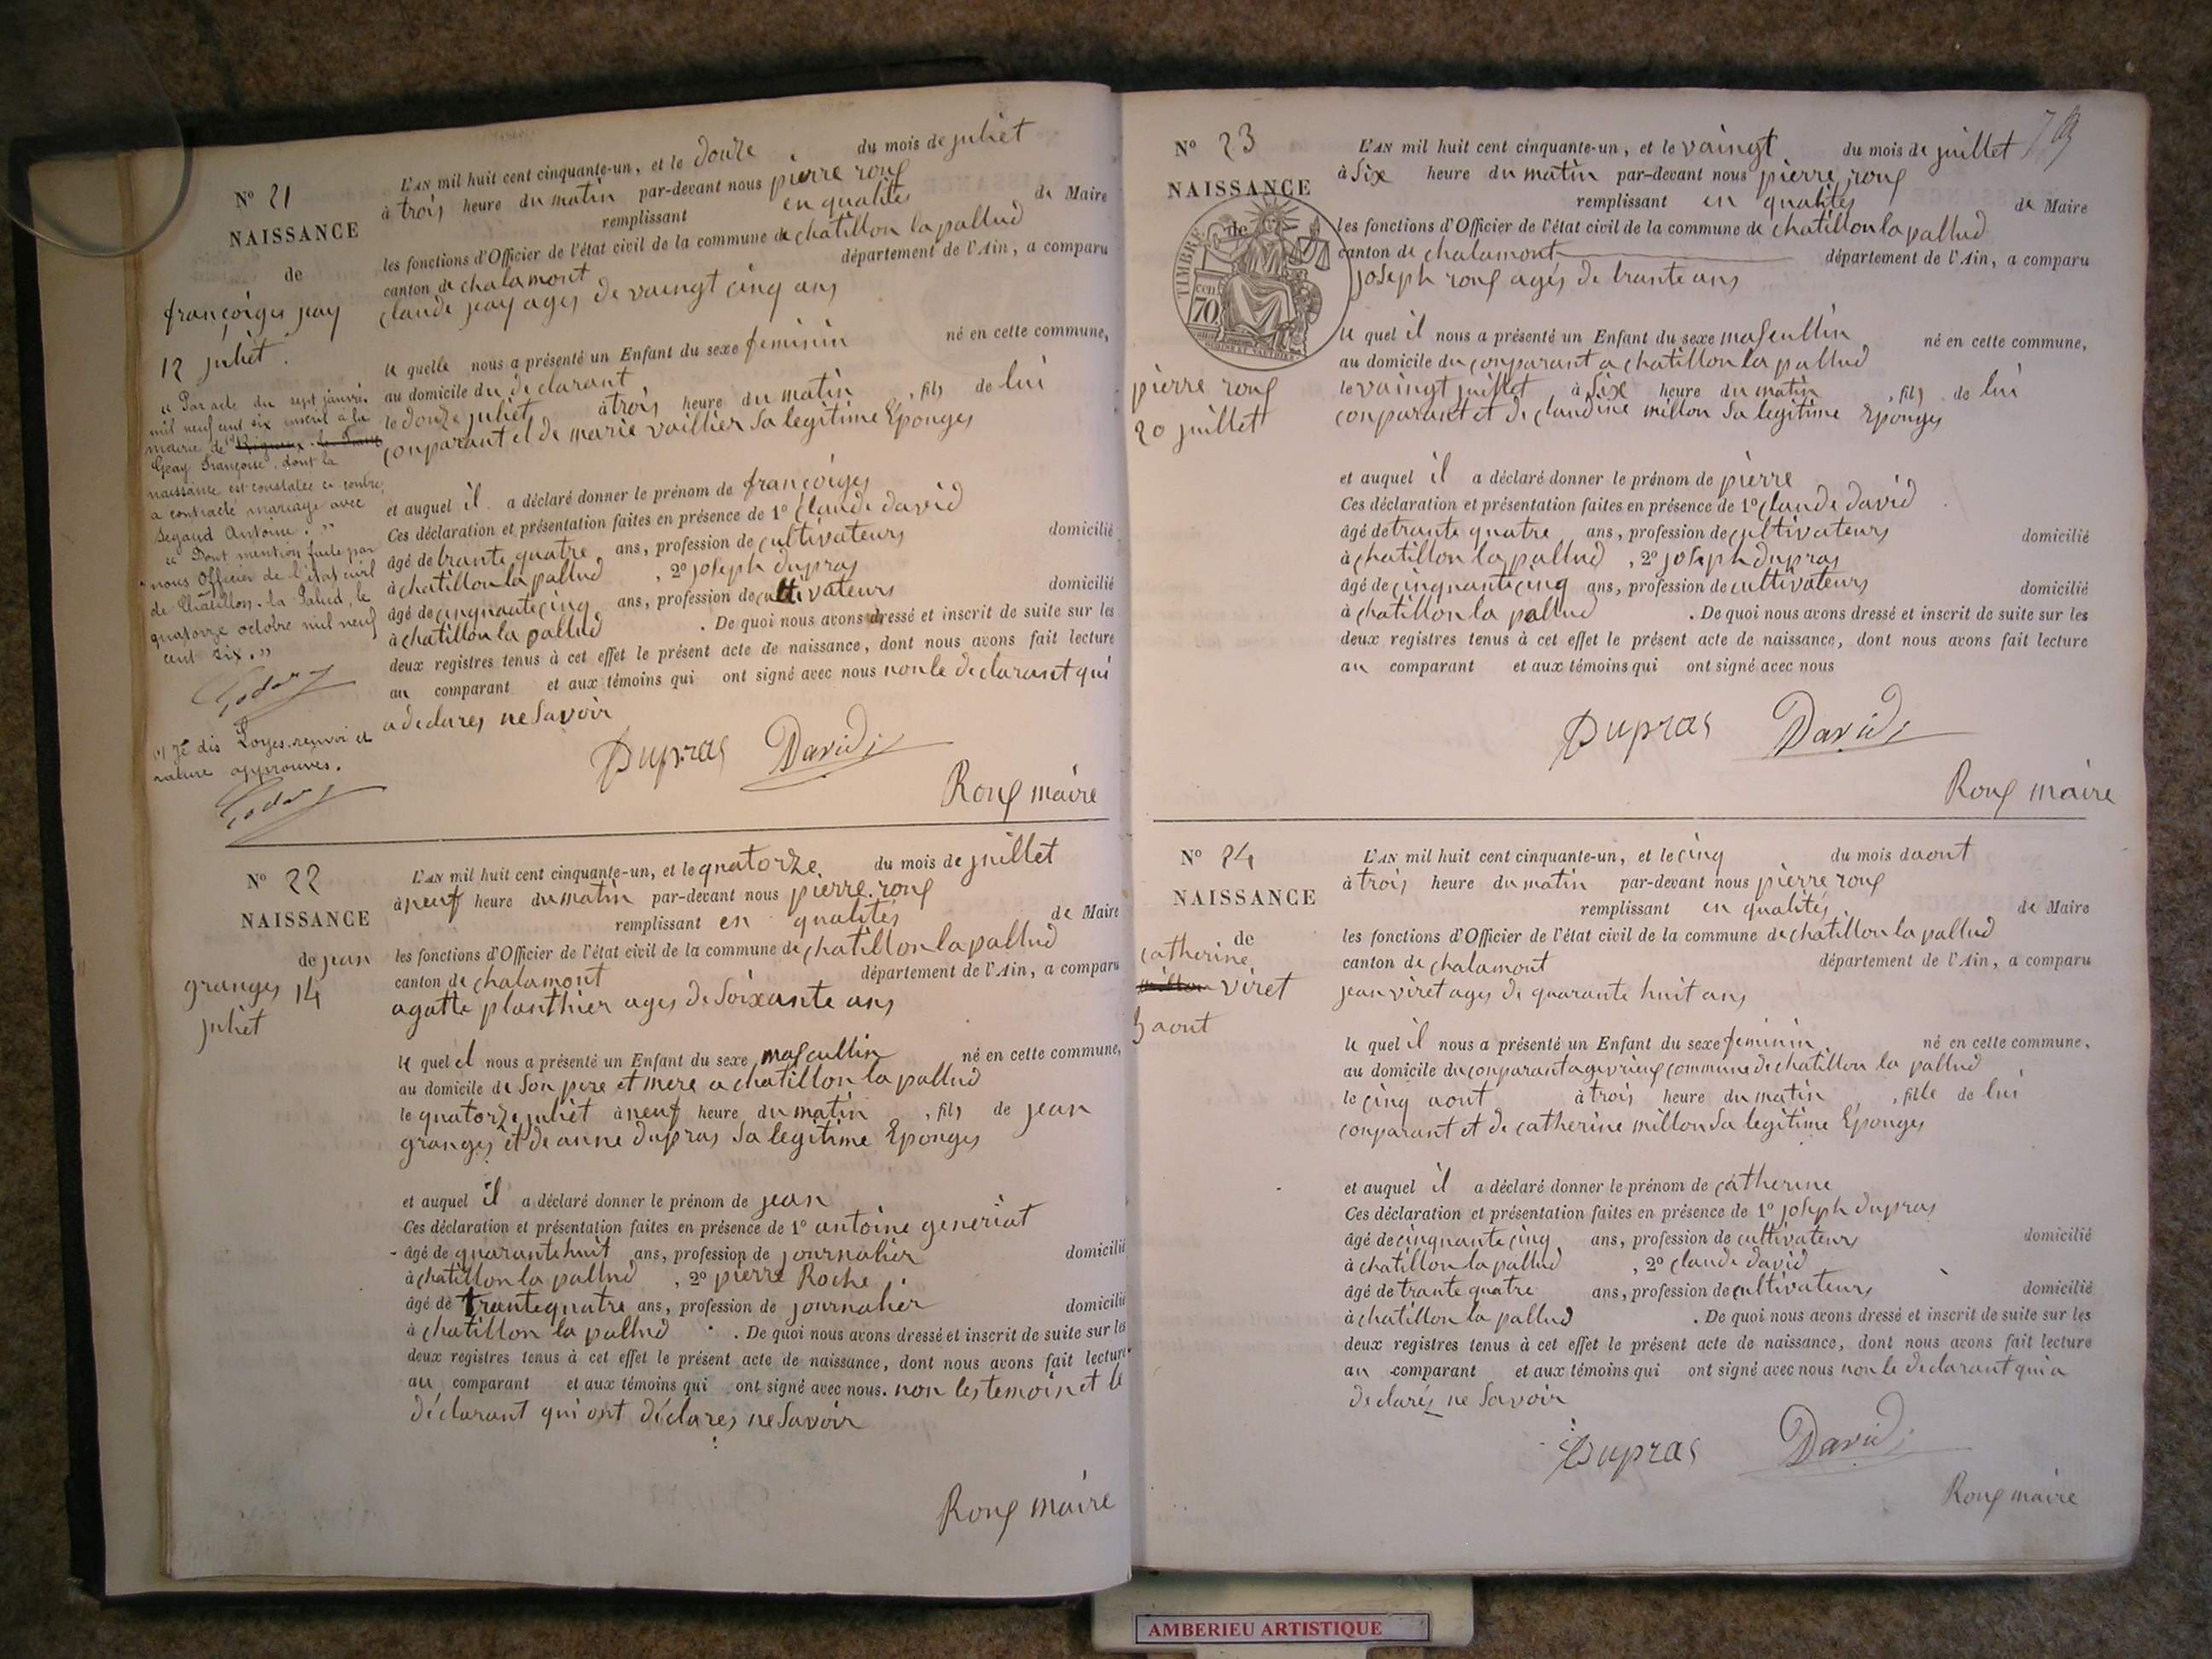 N° 21
NAISSANCE
de
françoiges jeay
12 juliet.
« Par acte du sept janvier
mil neuf cent six inscrit à la
mairie de
Geay Françoise, dont la
naissance est constatée ci-contre,
a contracté mariage avec
Segaud Antoine. »
« Dont mention faite par
nous Officier de l'état civil
de Châtillon-la-Palud, le
quatorze octobre mil neuf
cent six. »
dis Loyes. renvoi et
rature approuvés.
L'AN mil huit cent cinquante-un, et le douze du mois de juliet
à trois heure du matin par-devant nous pierre roux
remplissant en qualités de Maire
les fonctions d'Officier de l'état civil de la commune de chatillon la pallud
canton de chalamont département de l'Ain, a comparu
claude jeay ages de vaingt cinq ans
le quelle nous a présenté un Enfant du sexe feminin né en cette commune,
au domicile du declarant
le douze juliet à trois heure du matin , fils de lui
conparant et de marie vaillier sa legitime Eponges
et auquel il a déclaré donner le prénom de françoiges
Ces déclaration et présentation faites en présence de 1° claude david
âgé de trante quatre ans, profession de cultivateurs domicilié
à chatillon la pallud , 2° joseph dupras
âgé de cinquante cinq ans, profession de cultivateurs domicilié
à chatillon la pallud . De quoi nous avons dressé et inscrit de suite sur les
deux registres tenus à cet effet le présent acte de naissance, dont nous avons fait lecture
au comparant et aux témoins qui ont signé avec nous non le declarant qui
a declares ne savoir
Dupras David
Roux maire
N° 22
NAISSANCE
de jean
granges 14
juliet
L'AN mil huit cent cinquante-un, et le quatorze du mois de juillet
à neuf heure du matin par-devant nous pierre roux
remplissant en qualités de Maire
les fonctions d'Officier de l'état civil de la commune de chatillon la pallud
canton de chalamont département de l'Ain, a comparu
agatte planthier ages de soixante ans
le quel el nous a présenté un Enfant du sexe mascullin né en cette commune,
au domicile de son pere et mere a chatillon la pallud
le quatorze juliet à neuf heure du matin , fils de jean
granges et de anne dupras sa legitime Eponges
et auquel il a déclaré donner le prénom de jean
Ces déclaration et présentation faites en présence de 1° antoine generiat
âgé de quarante huit ans, profession de journalier domicilié
à chatillon la pallud , 2° pierre Roche
âgé de trante quatre ans, profession de journalier domicilié
à chatillon la pallud . De quoi nous avons dressé et inscrit de suite sur les
deux registres tenus à cet effet le présent acte de naissance, dont nous avons fait lecture
au comparant et aux témoins qui ont signé avec nous. non les temoin et le
déclarant qui ont déclares ne savoir
Roux maire
N° 23
NAISSANCE
de
TIMBRE
cen
70
pierre roux
20 juillet
L'AN mil huit cent cinquante-un, et le vaingt du mois de juillet
à six heure du matin par-devant nous pierre roux
remplissant en qualités de Maire
les fonctions d'Officier de l'état civil de la commune de chatillon la pallud
canton de chalamont département de l'Ain, a comparu
joseph roux agés de trante ans
le quel il nous a présenté un Enfant du sexe mascullin né en cette commune,
au domicile du conparant a chatillon la pallud
le vaingt juillet à six heure du matin , fils de lui
conparant et de claudine millon sa legitime Eponges
et auquel il a déclaré donner le prénom de pierre
Ces déclaration et présentation faites en présence de 1° claude david
âgé de trante quatre ans, profession de cultivateurs domicilié
à chatillon la pallud , 2° joseph dupras
âgé de cinquante cinq ans, profession de cultivateurs domicilié
à chatillon la pallud . De quoi nous avons dressé et inscrit de suite sur les
deux registres tenus à cet effet le présent acte de naissance, dont nous avons fait lecture
au comparant et aux témoins qui ont signé avec nous
Dupras David
Roux maire
N° 24
NAISSANCE
de
catherine
viret
5 aout
L'AN mil huit cent cinquante-un, et le cinq du mois daout
à trois heure du matin par-devant nous pierre roux
remplissant en qualités de Maire
les fonctions d'Officier de l'état civil de la commune de chatillon la pallud
canton de chalamont département de l'Ain, a comparu
jean viret ages de quarante huit ans
le quel il nous a présenté un Enfant du sexe feminin né en cette commune,
au domicile du conparant a gevrieux commune de chatillon la pallud
le cinq aout à trois heure du matin , fille de lui
conparant et de catherine millon sa legitime Eponges
et auquel il a déclaré donner le prénom de catherine
Ces déclaration et présentation faites en présence de 1° joseph dupras
âgé de cinquante cinq ans, profession de cultivateurs domicilié
à chatillon la pallud , 2° claude david
âgé de trante quatre ans, profession de cultivateurs domicilié
à chatillon la pallud . De quoi nous avons dressé et inscrit de suite sur les
deux registres tenus à cet effet le présent acte de naissance, dont nous avons fait lecture
au comparant et aux témoins qui ont signé avec nous non le declarant qui a
declarés ne savoir
Dupras David
Roux maire
AMBERIEU ARTISTIQUE